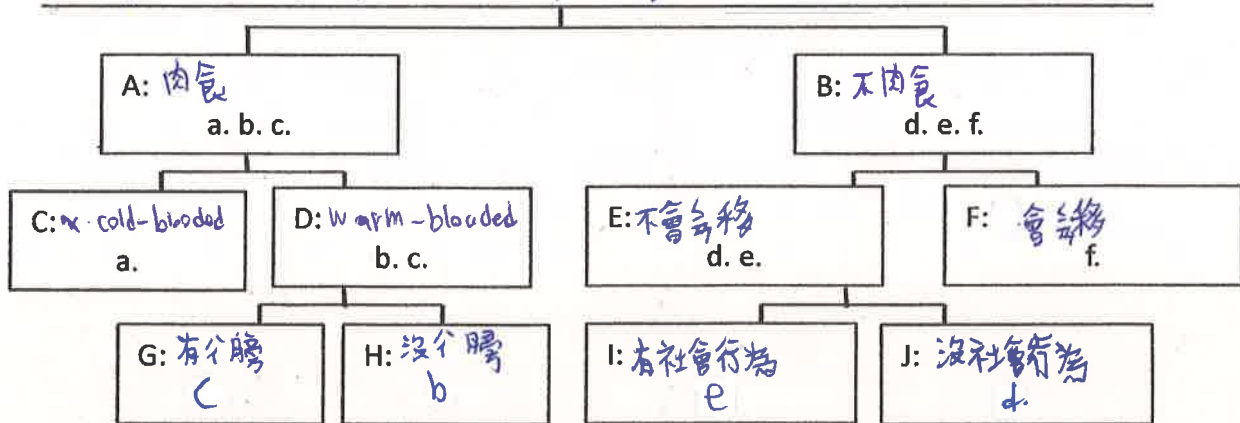 A: 肉食
a. b. c.
B: 不肉食
d. e. f.
C: cold-blooded
a.
D: warm-blouded
b. c.
E: 不會
d. e.
F: 會
f.
G: 有
C
H: 沒
b
I: 有社會行為
e
J: 沒社會行為
d.